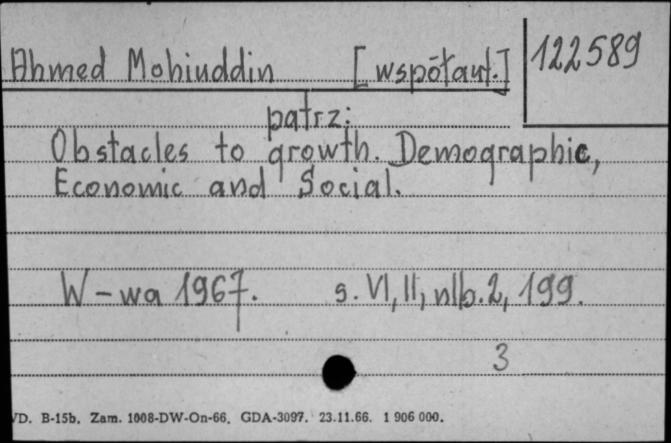 Ahmed Mohiuddin [współaut.] 122589
patrz:
Obstacles to growth. Demographic,
Economic and Social.
W-wa 1967. s. VI, II, nlb. 2, 199.
3
VD. B-15b. Zam. 1008-DW-On-66. GDA-3097. 23.11.66. 1 906 000.